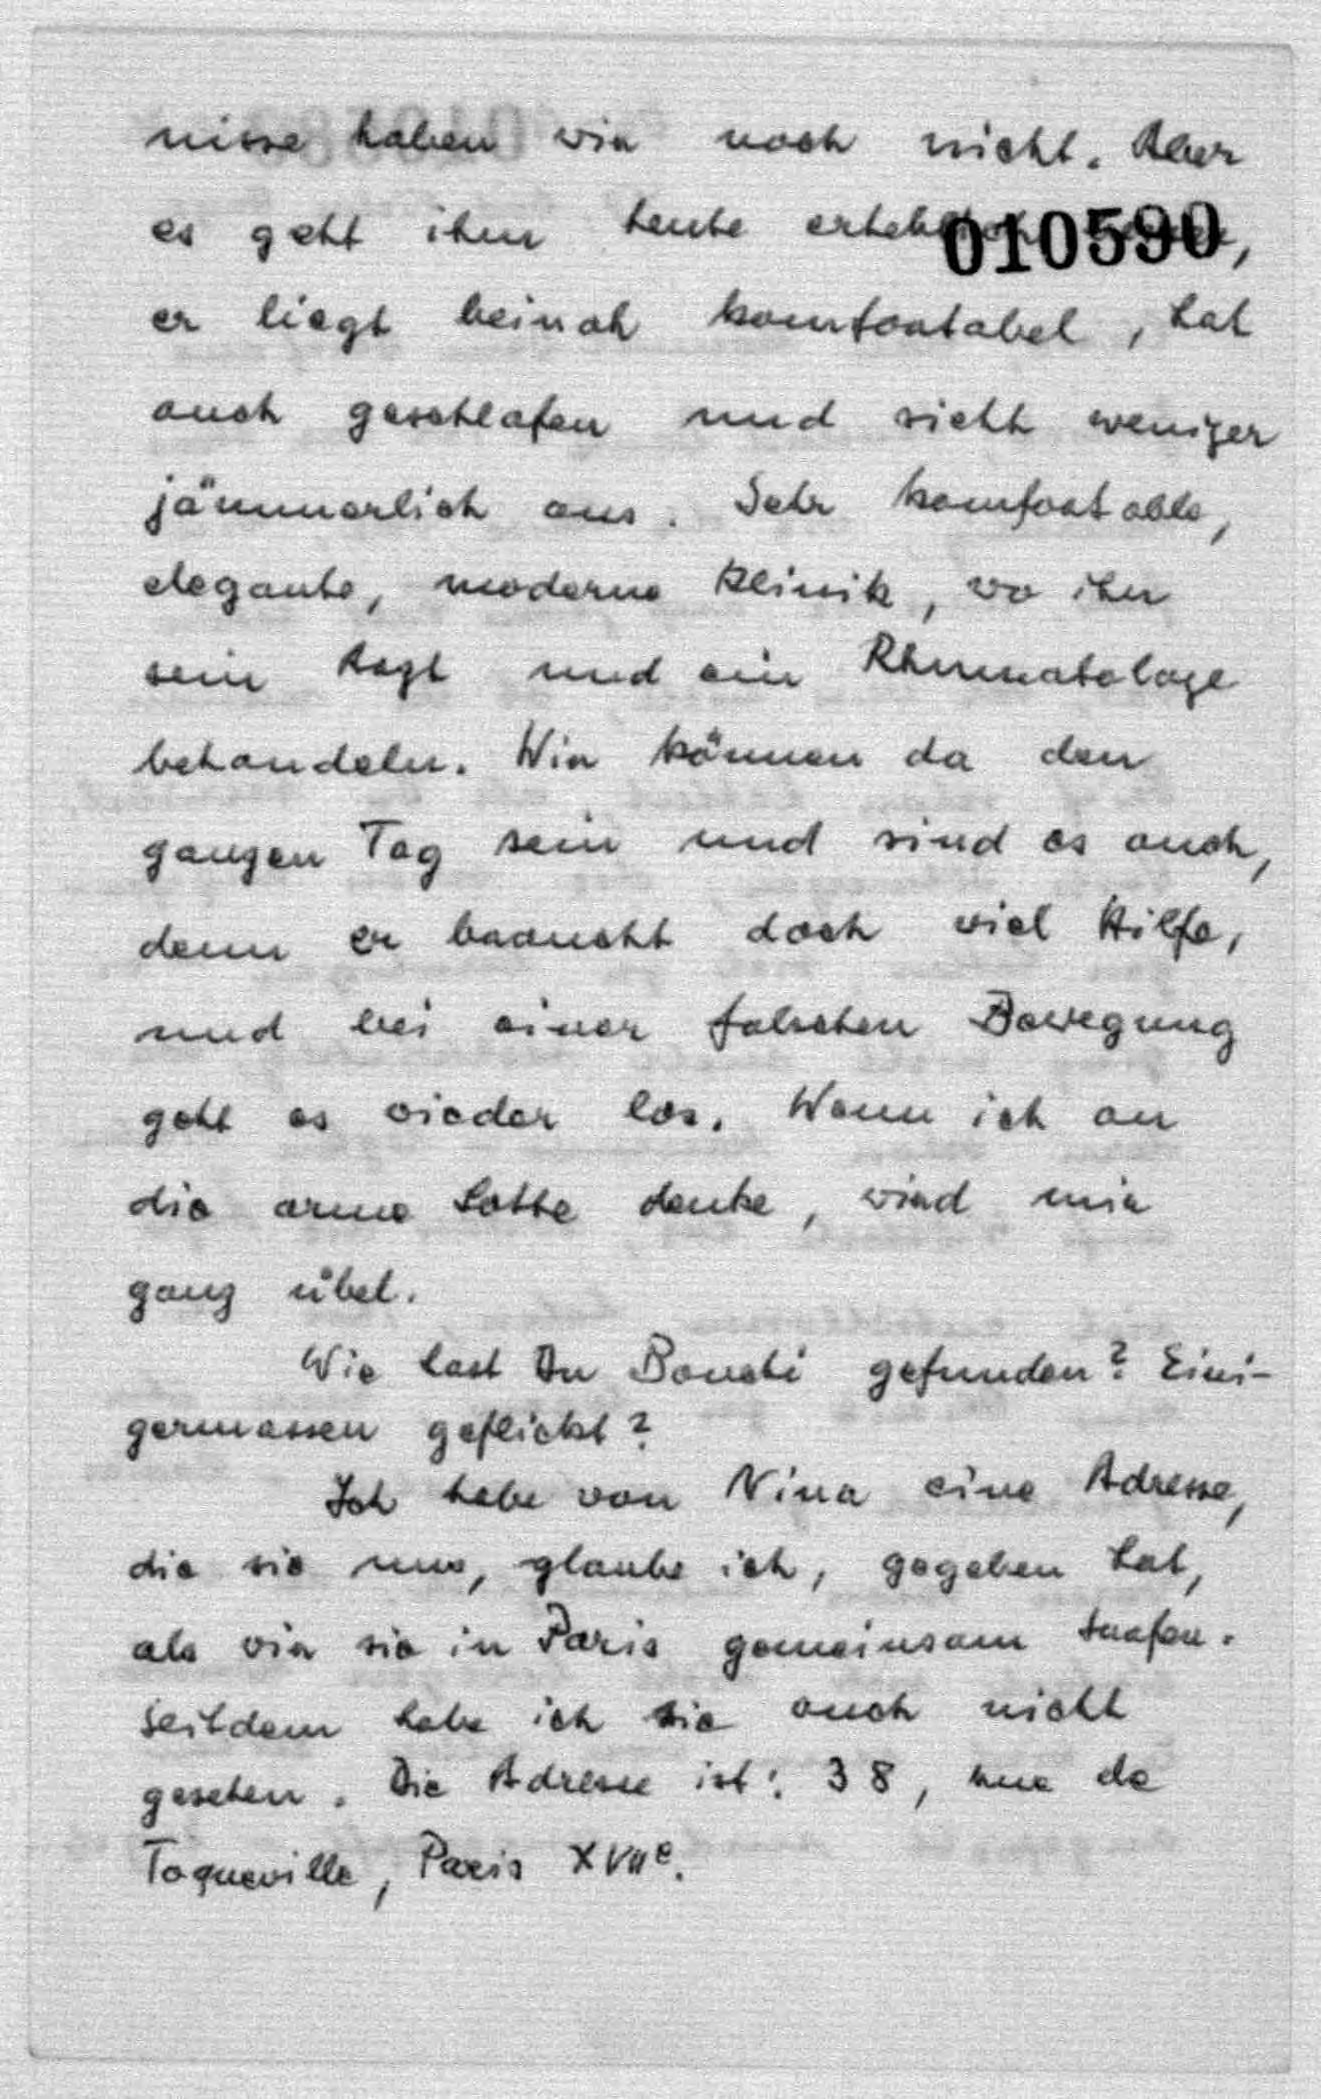 nisse haben wir noch nicht. Aber
010590
es geht ihm heute erheblich
er liegt beinah komfortabel, hat
auch geschlafen und sieht weniger
jämmerlich aus. Sehr komfortable,
elegante, moderne Klinik, wo ihn
sein Arzt und ein Rheumatologe
behandeln. Wir können da den
ganzen Tag sein und sind es auch,
denn er braucht doch viel Hilfe,
und bei einer falschen Bewegung
geht es wieder los. Wenn ich an
die arme Lotte denke, wird mir
ganz übel.
Wie hast Du gefunden? Eini-
germassen geflickt?
Ich habe von Nina eine Adresse,
die sie uns, glaube ich, gegeben hat,
als wir sie in Paris gemeinsam trafen.
Seitdem habe ich sie auch nicht
gesehen. Die Adresse ist: 38, rue de
Toqueville, Paris XVIIe.